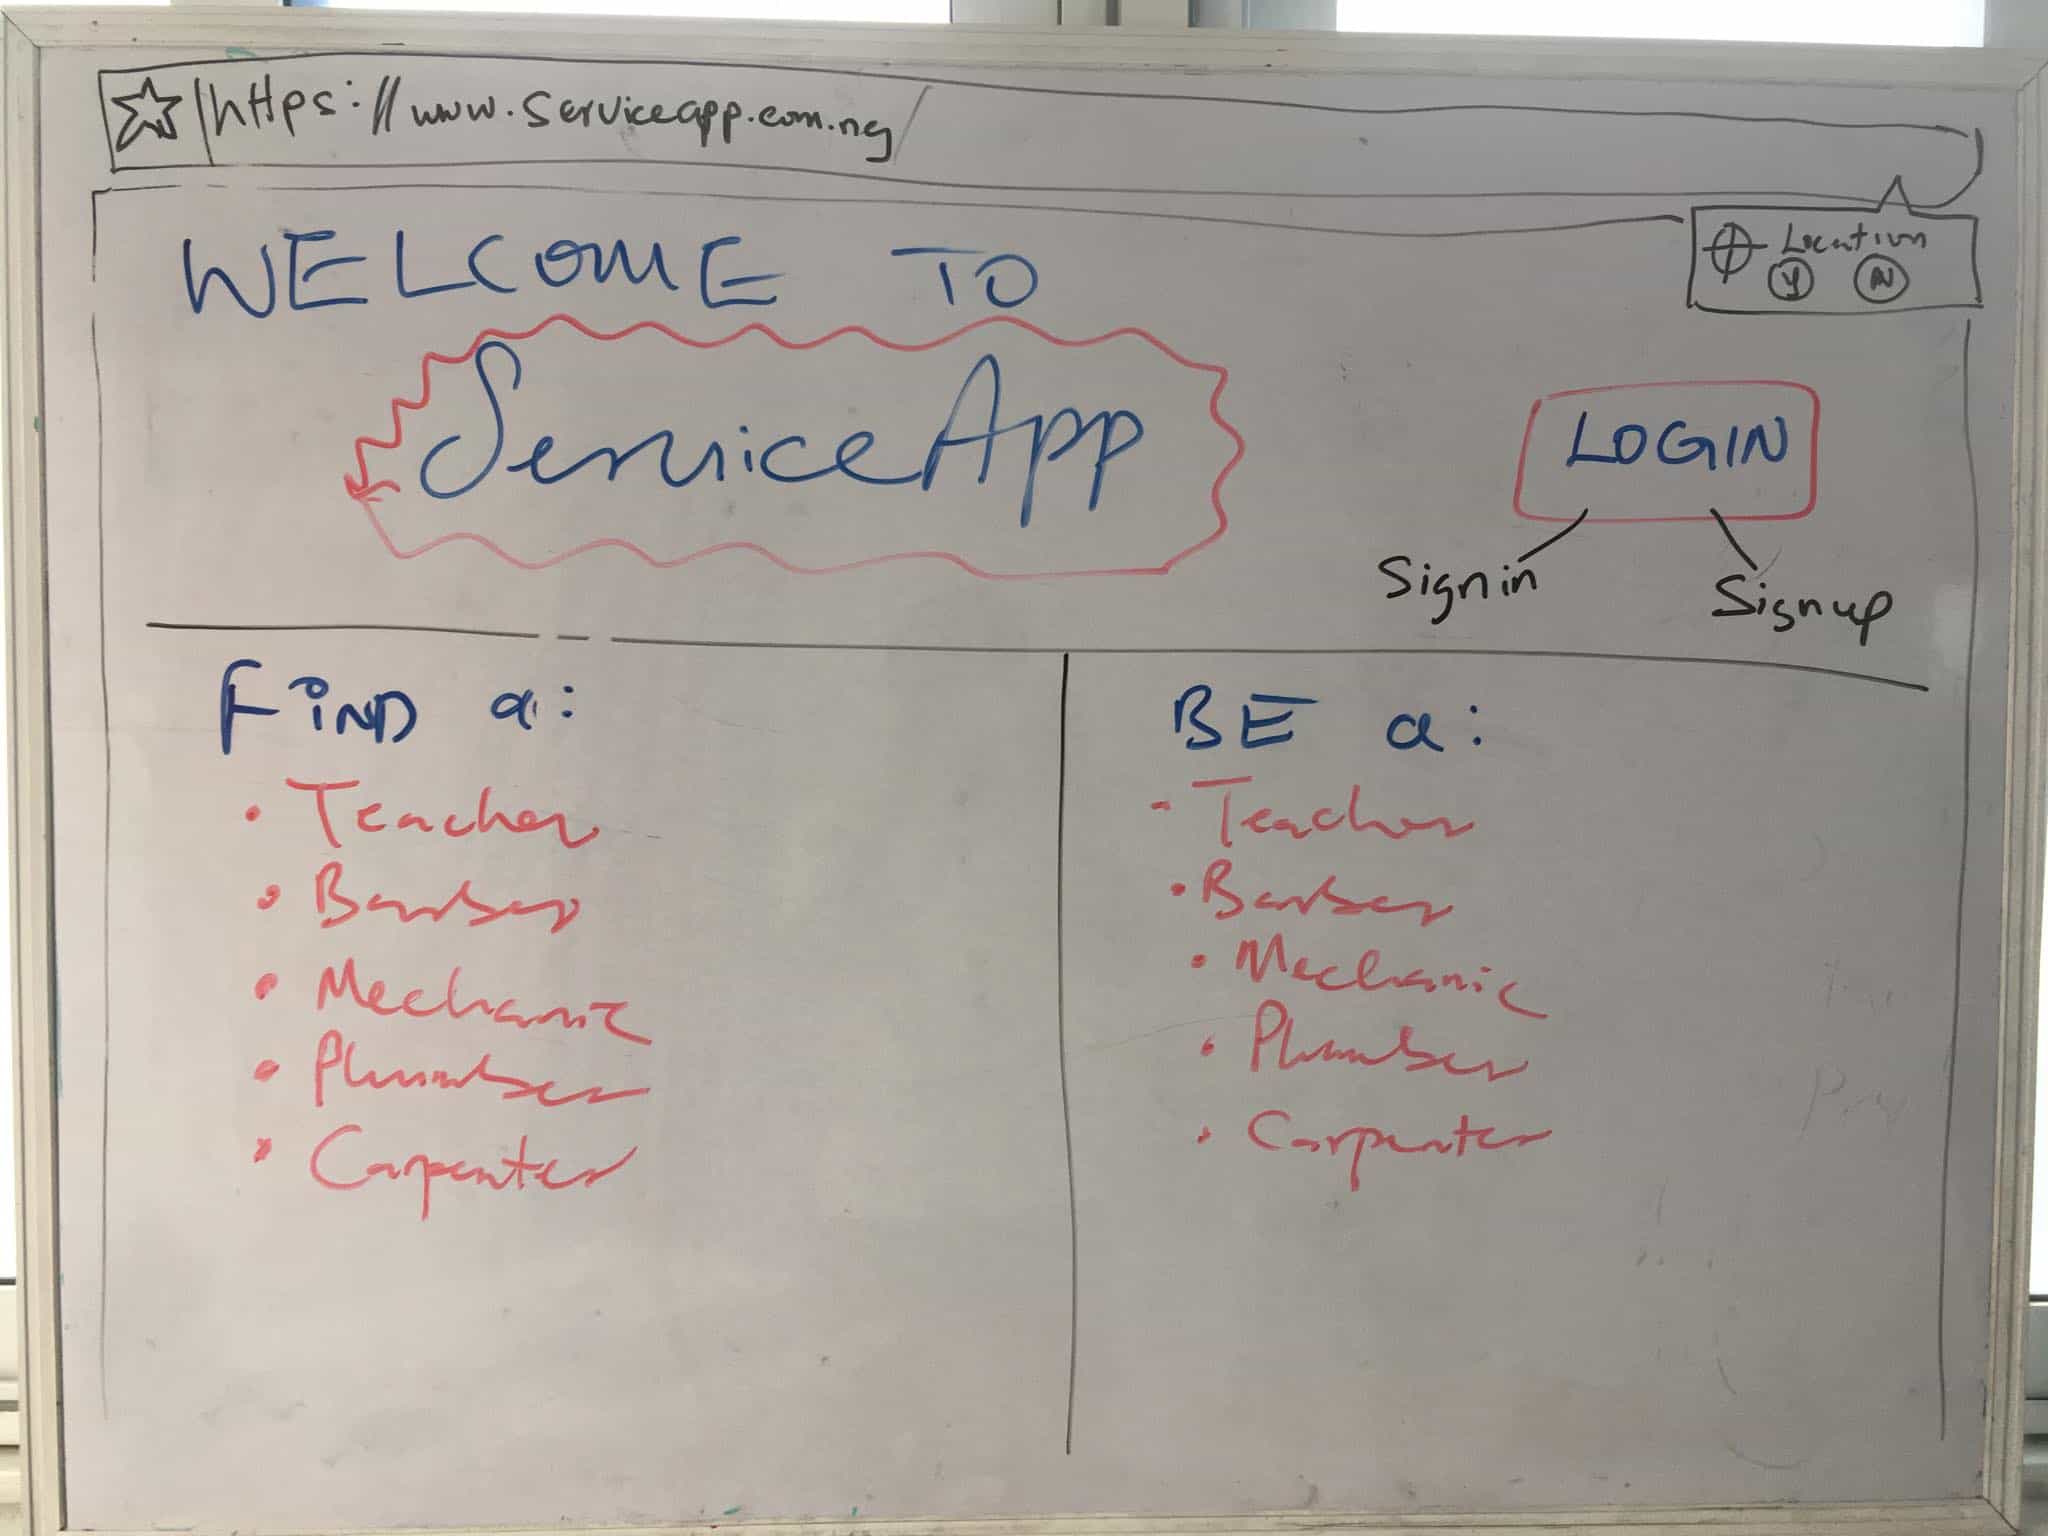 https://www.serviceapp.com.ng/
WELCOME TO
Location
Y N
ServiceApp
LOGIN
Sign in
Sign up
FIND a:
• Teacher
• Barber
• Mechanic
• Plumber
• Carpenter
BE a:
- Teacher
• Barber
• Mechanic
• Plumber
• Carpenter